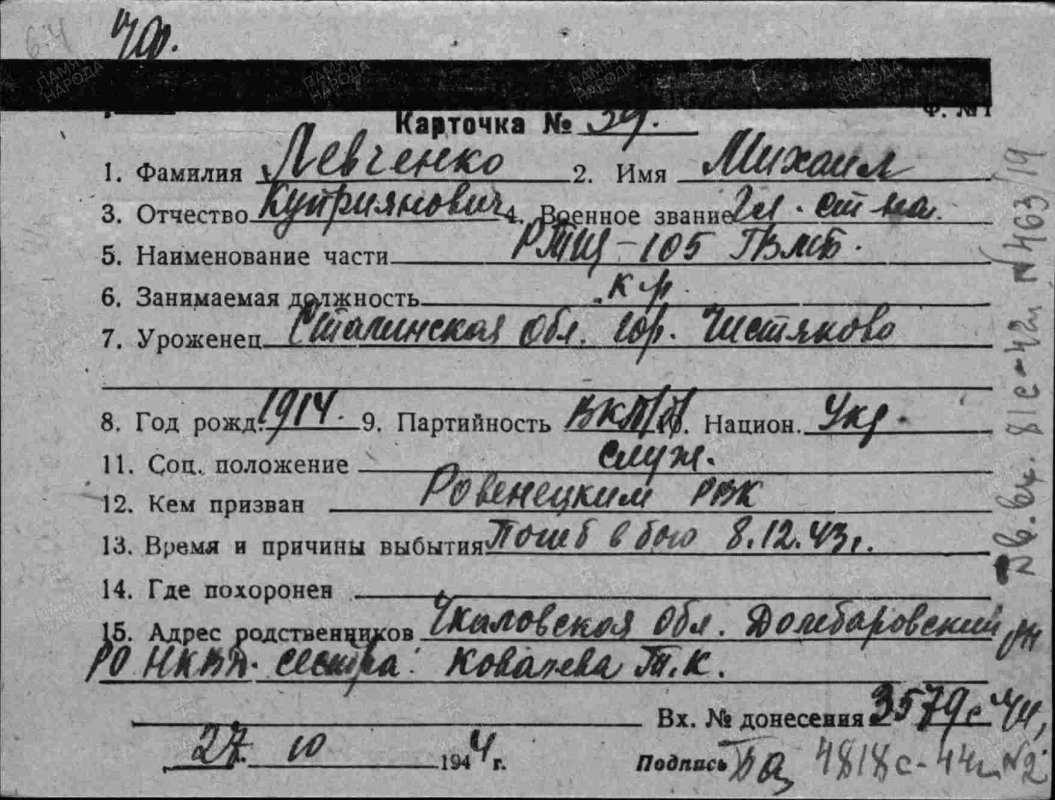 Карточка № 39.
1. Фамилия Левченко 2. Имя Михаил
3. Отчество Куприянович 4. Военное звание Гл. ст-на.
5. Наименование части РТЩ-105 ГВМБ.
6. Занимаемая должность к-р
7. Уроженец Сталинская обл. гор. Чистяково
8. Год рожд. 1914. 9. Партийность ВКП/б/. Национ. Укр.
11. Соц. положение служ.
12. Кем призван Ровенецким РВК
13. Время и причины выбытия Погиб в бою 8.12.43г.
14. Где похоронен
15. Адрес родственников Чкаловская обл. Домбаровский р-н
РО НКВД. сестра: Ковалева Т.К.
Вх. № донесения 3579с-44,
27. 10 1944 г. Подпись 4818с-44г №2
ПАМЯТЬ НАРОДА